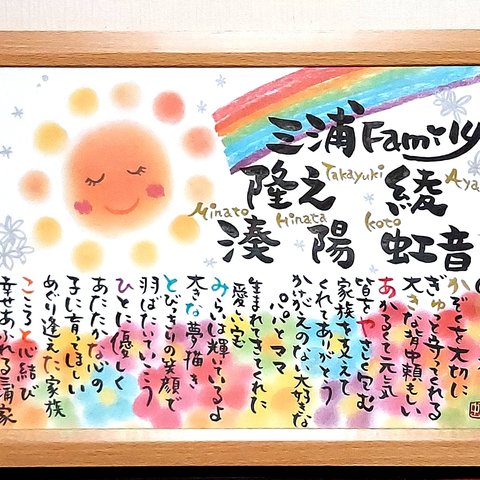 三浦Family
Takayuki
Aya
隆之 綾
Minato
Hinata
Koto
湊 陽 虹音
かぞくを大切に
ぎゅっと守ってくれる
大きな背中頼もしい
あかるくて元気
皆をやさしく包む
家族を支えて
くれてありがとう
かけがえのない大好きな
パパとママ
生まれてきてくれた
愛しい宝
みらいは輝いているよ
大きな夢描き
とびっきりの笑顔で
羽ばたいていこう
ひとに優しく
あたたかな心の
子に育ってほしい
めぐり逢えた家族
こころと心結び
幸せあふれる三浦家